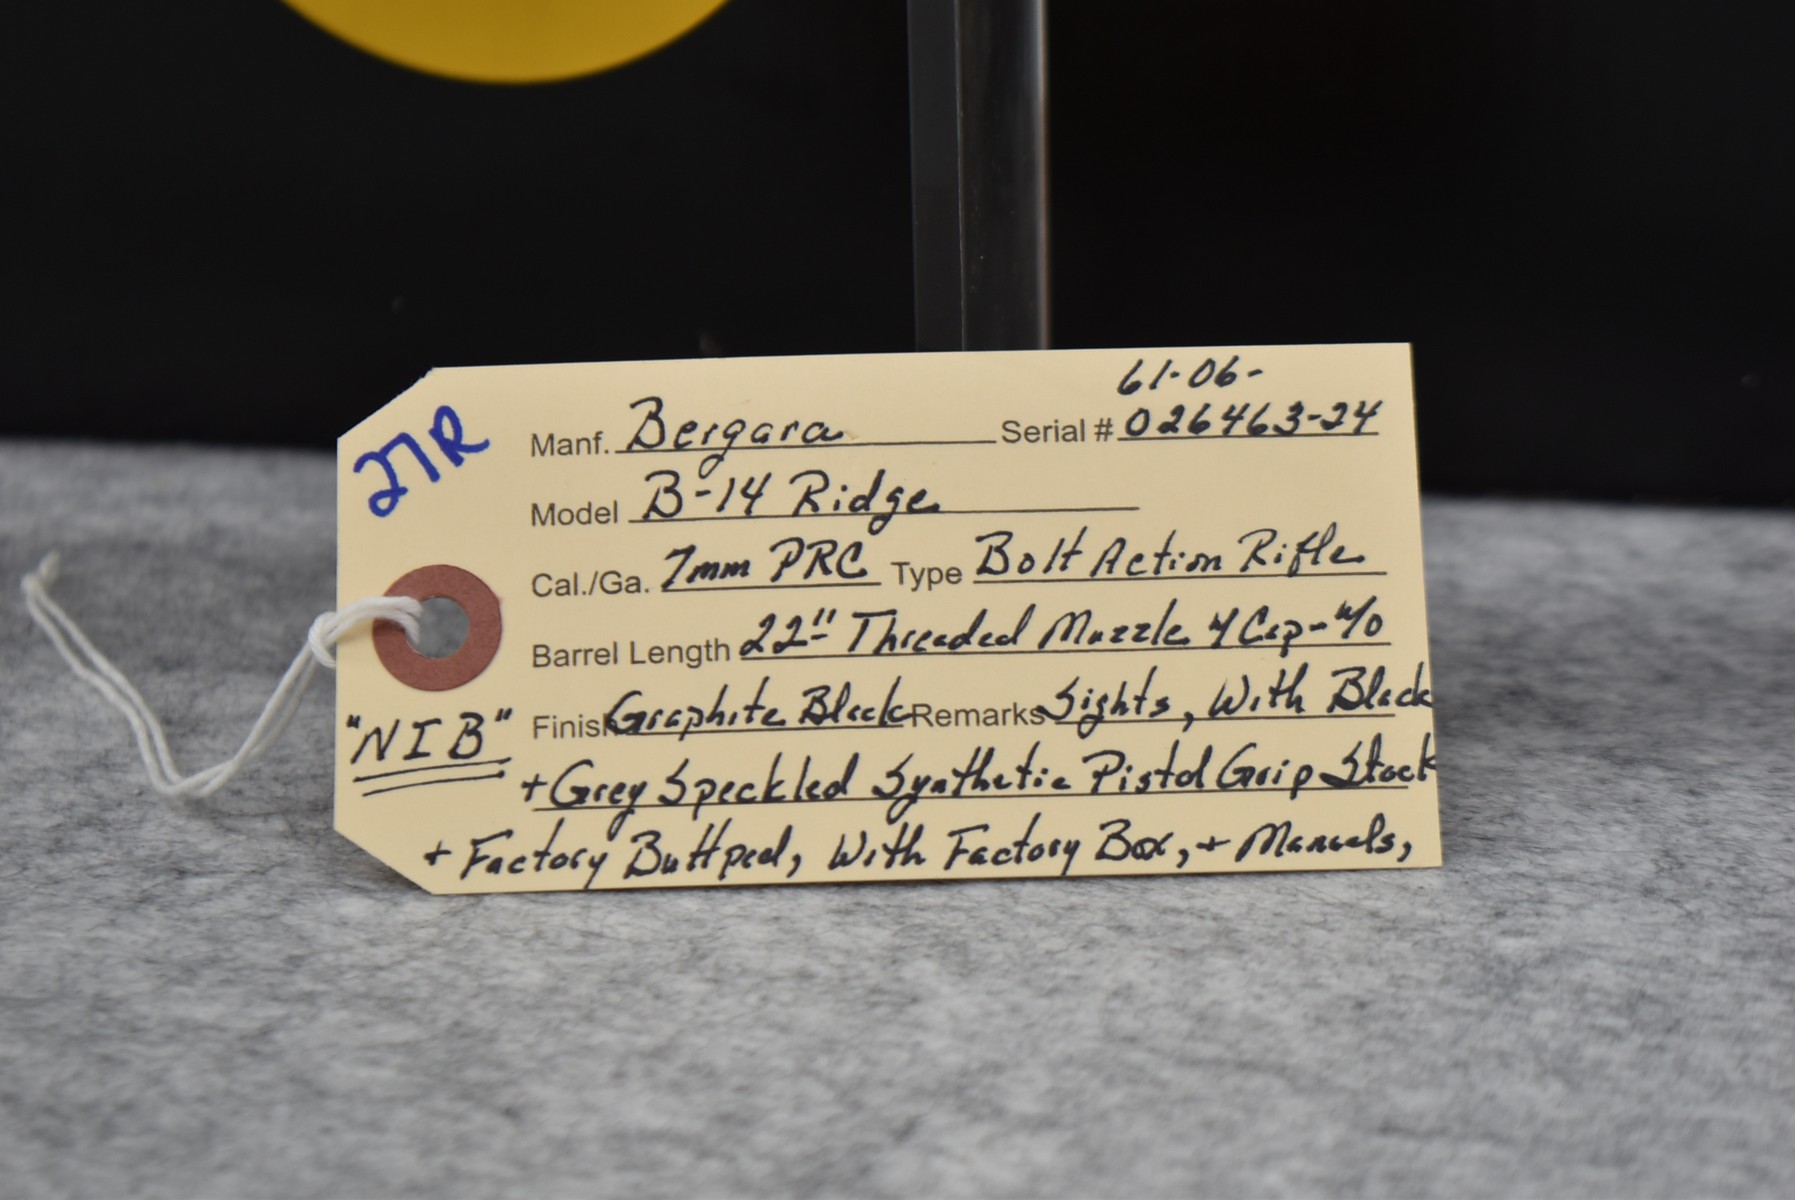 27R
61-06-
Manf. Bergara Serial # 026463-24
Model B-14 Ridge
Cal./Ga. 7mm PRC Type Bolt Action Rifle
Barrel Length 22" Threaded Muzzle + Cap-W/O
Finish Graphite Black Remarks Sights, With Black
"NIB"
+ Grey Speckled Synthetic Pistol Grip Stock
+ Factory Buttpad, With Factory Box, + Manuals,